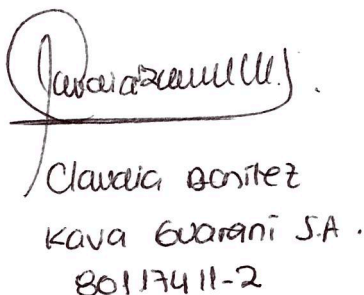 Claudia Benitez
Kava Guarani S.A.
80117411-2